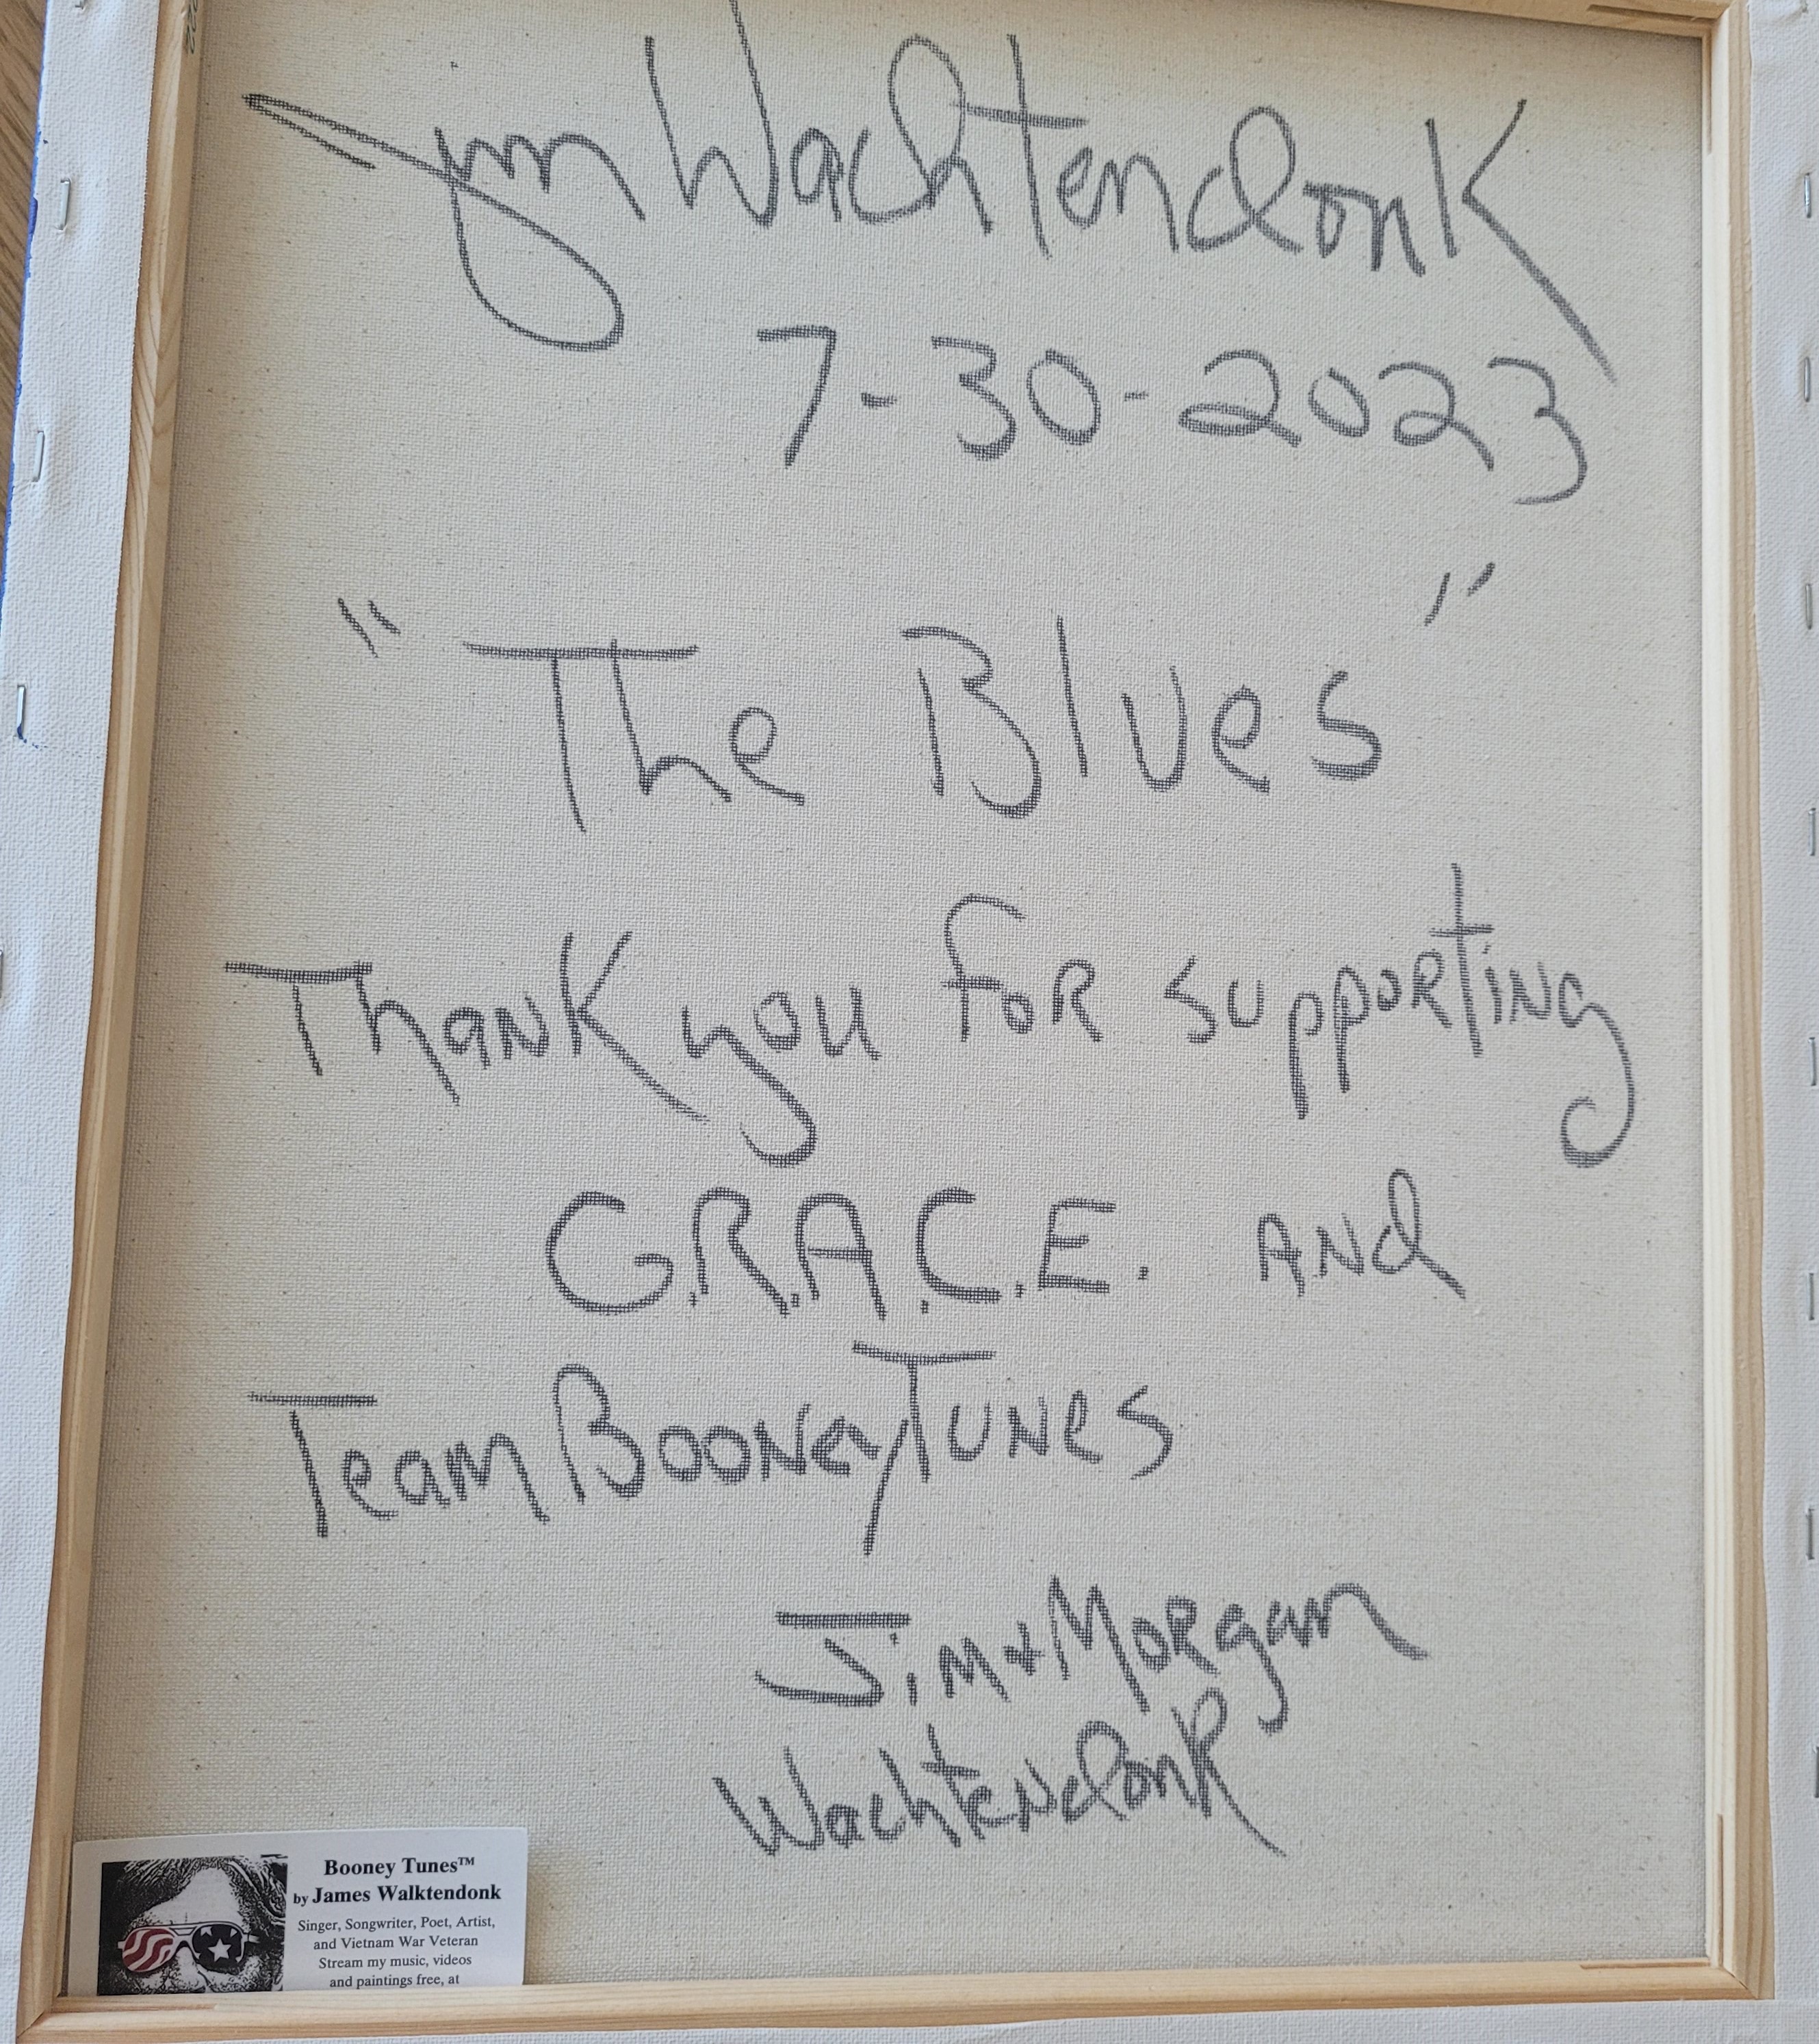 Jim Wachtendonk
7-30-2023
"The Blues"
Thank you for supporting
G.R.A.C.E. and
Team Booney Tunes
Jim & Morgan
Wachtendonk
Booney Tunes™
by James Walktendonk
Singer, Songwriter, Poet, Artist,
and Vietnam War Veteran
Stream my music, videos
and paintings free, at